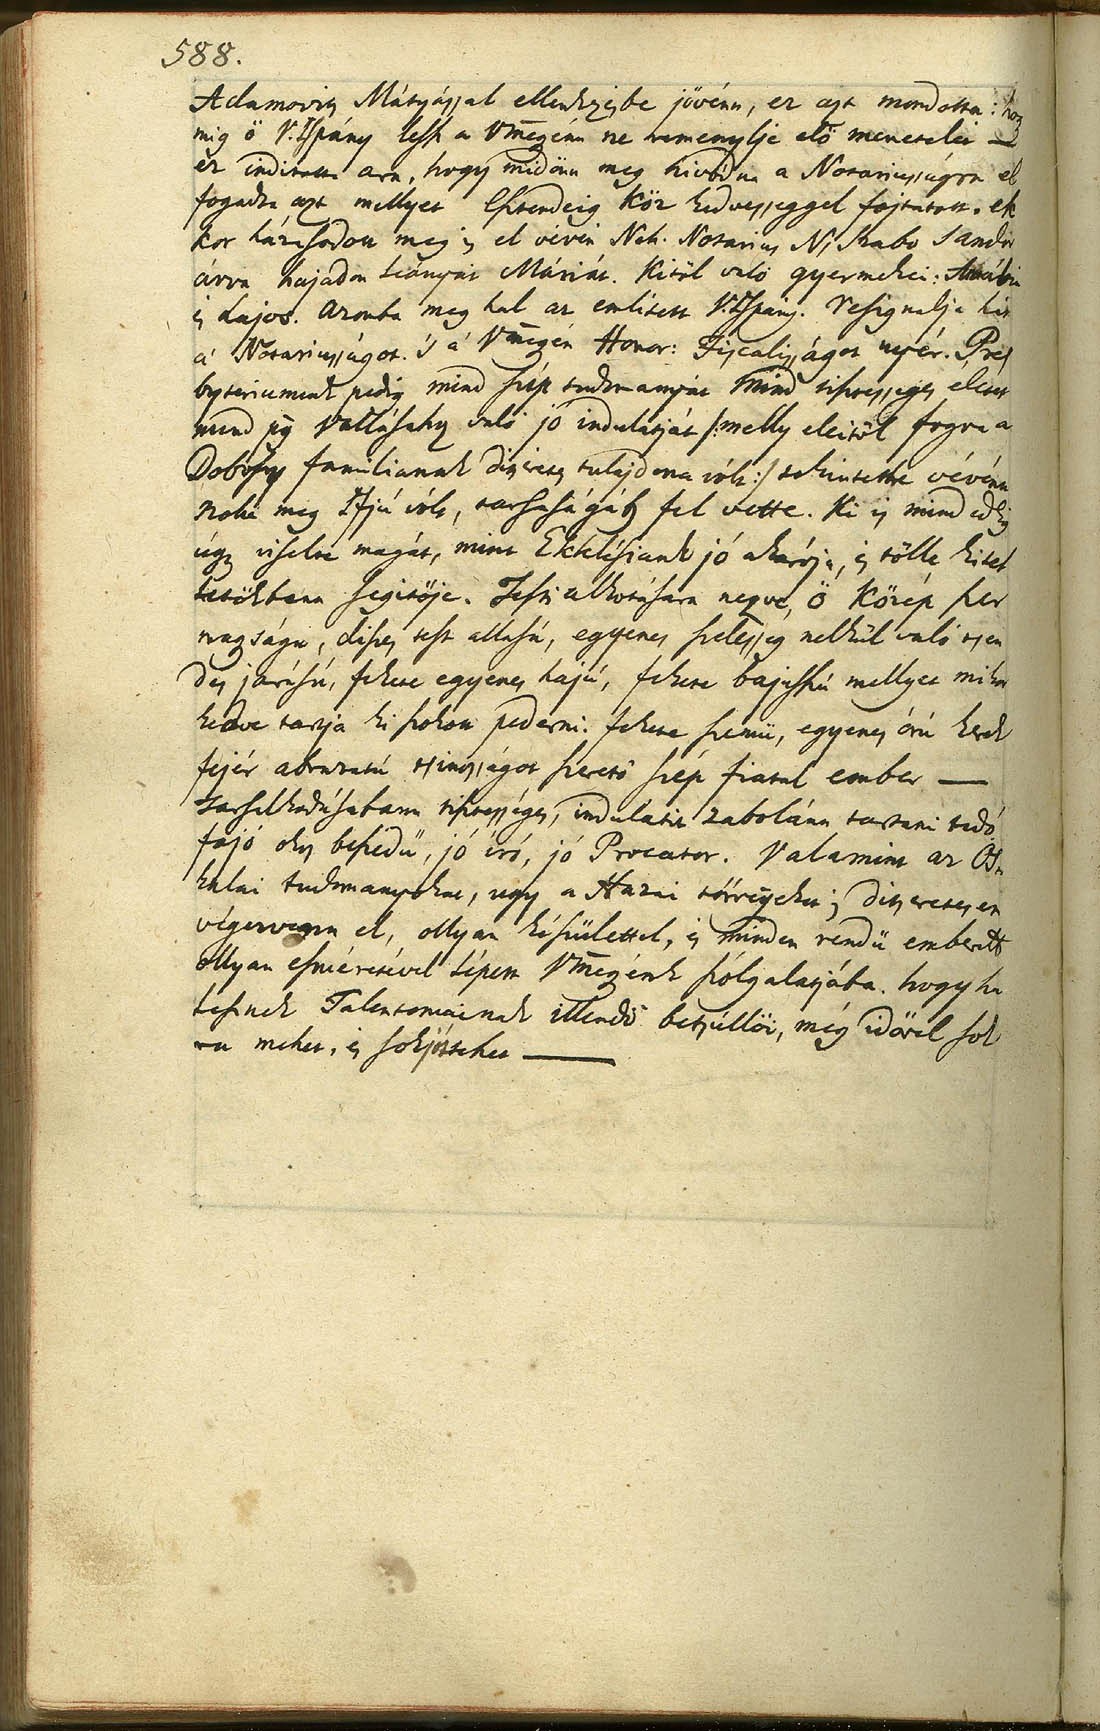 588.
Adamovits Mátyással ellenkezésbe jövénn, ez azt mondotta: hogy
mig ö V.Ispány lesz a Vmegénn ne remenylje elö menetelét —
ez inditotta arra, hogy midönn meg hivódna a Notariusságra el
fogadta azt mellyet Esztendeig köz kedvességgel fojtatott. ek
kor házasodott meg is el vévén Neh. Notarius N. Szabo Sandor
árva hajadon leányát Máriát. Kitöl való gyermekei:
és Lajos. Azomba meg hal az emlitett V.Ispány. Resignalja hát
a' Notariusságot. 's a' Vmegén Honor: Fiscalisságot nyér. Pres
byteriumunk pedig mind szép tudomanyát mind tisztességes életét
mind pg Vallásahoz való jó indulatját /:melly eleitöl fogva a
Dobosy familianak ditséretes tulajdona vólt:/ tekintetbe vévénn
noha meg Ifjú vólt, tarsaságáb fel vette. Ki is mind eddig
úgy viselte magát, mint Ekklésiank jó akarója, és tölle kitel
hetökbenn segitöje. Testi alkotására nezve, Ö közép szer
nagságu, diszes test allasú, egyenes szelesség nelkül való tsen
des járású, fekete egyenes hajú, fekete bajuszú mellyet mikor
kedve tartja ki szokott pederni. fekete szemü, egyenes órú kerek
fejér abrazatú tsinosságot szeretö szép fiatal ember —
Tarsalkodásabann tisztességes, indulatit zabolánn tartani tudó
fojó okos beszédü, jó író, jó Procator. Valamint az Os
kolai tudomanyokat, ugy a Hazai törvényeket is ditséretesen
végezvenn el, ollyan készülettel, és minden rendü emberektt
ollyan esmérettével lépett Vmegénk szólgalatjába. hogy ha
lesznek Talentomainak illendö betsüllöi, még idövel sok
ra mehet, és sokj tehet —